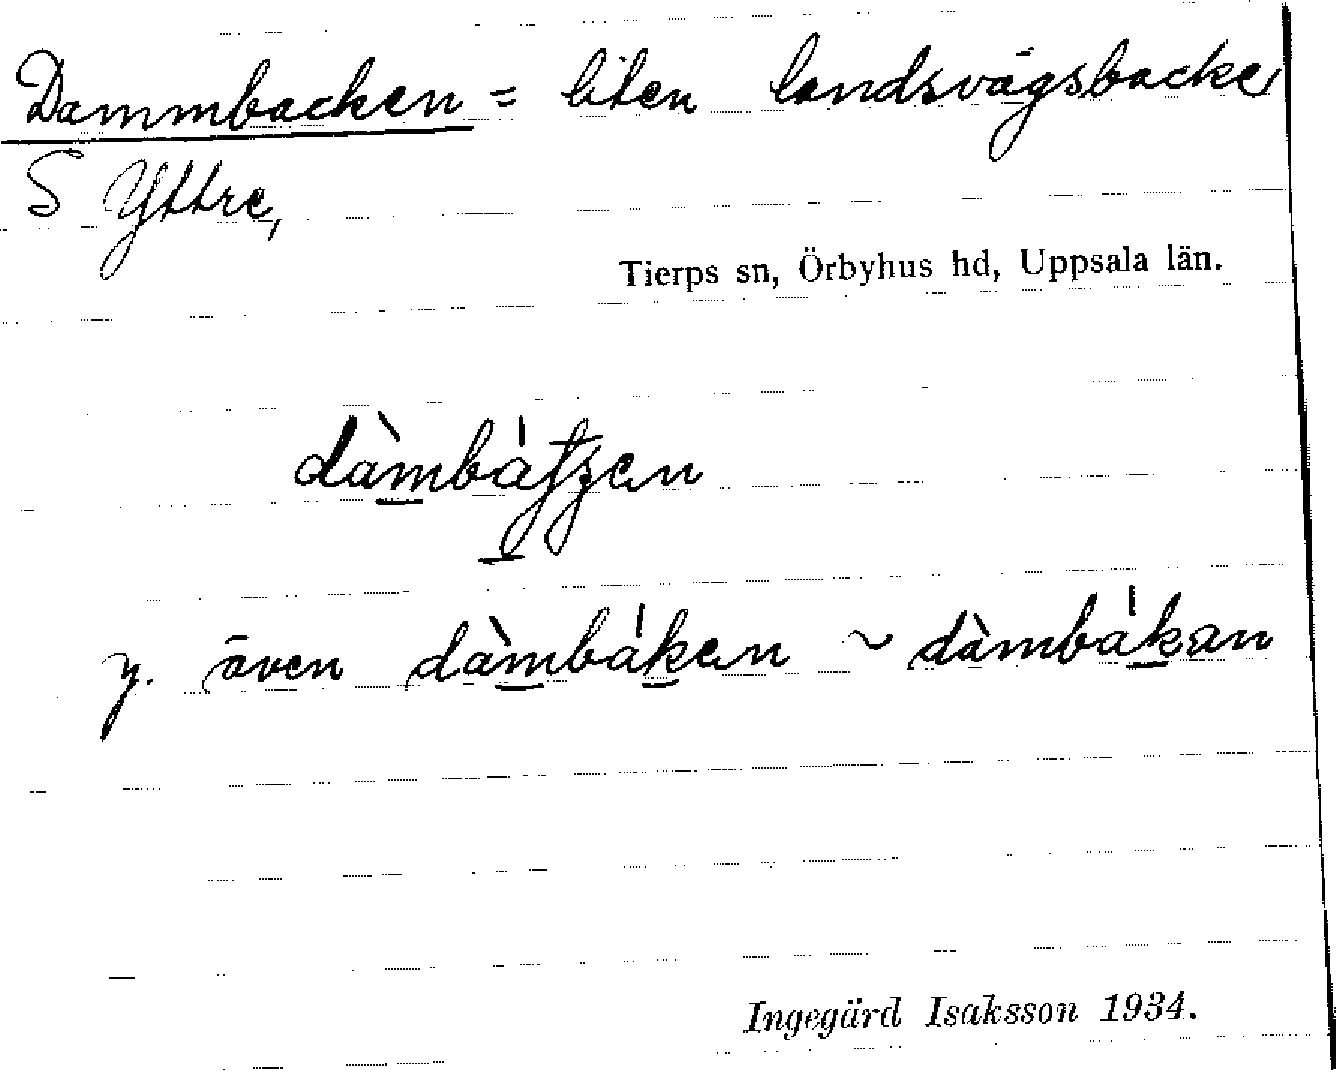 Dammbacken = liten landsvägsbacke,
S Yttre,
Tierps sn, Örbyhus hd, Uppsala län.
y. även
Ingegärd Isaksson 1934.